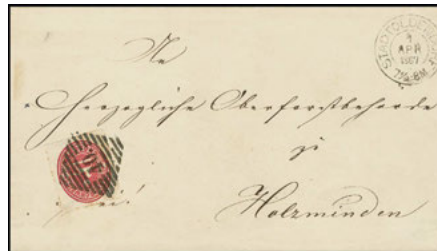 STADTOLDENDORF
APR
1867
An
Herzogliche Oberforstbehörde
zu
Holzminden